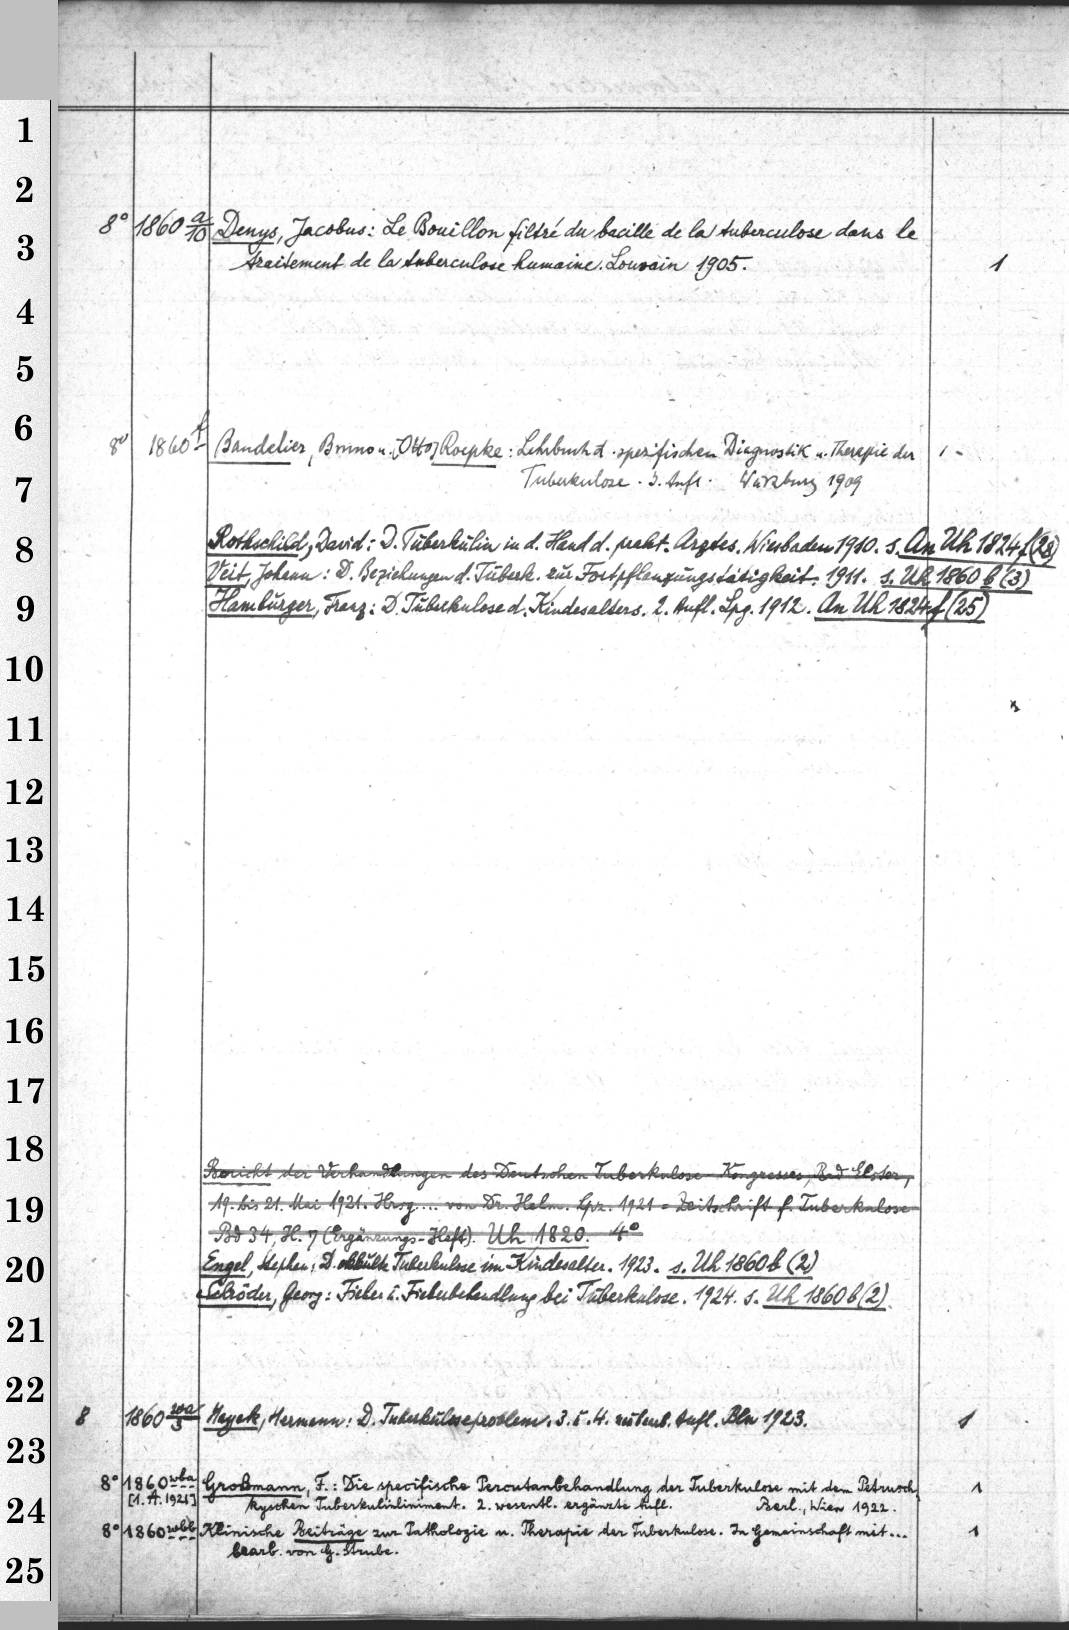 1
2
8° 1860 a/10 Denys, Jacobus: Le Bouillon filtré du bacille de la tuberculose dans le
3
traitement de la tuberculose humaine. Louvain 1905. 1
4
5
6
8° 1860 f Bandelier, Bruno u. [Otto] Roepke: Lehrbuch d. spezifischen Diagnostik u. Therapie der 1
7 Tuberkulose. 3. Aufl. Würzburg 1909
8 Rothschild, David: D. Tuberkulin in d. Hand d. prakt. Arztes. Wiesbaden 1910. s. An Uh 1824 f (28)
Veit, Johann: D. Beziehungen d. Tuberk. zur Fortpflanzungstätigkeit. 1911. s. Uh 1860 b (3)
9 Hamburger, Franz: D. Tuberkulose d. Kindesalters. 2. Aufl. Lpg. 1912. An Uh 1824 f (25)
10
11
12
13
14
15
16
17
18
Bericht der Verhandlungen des Deutschen Tuberkulose-Kongresses, Bad Elster,
19 19. bis 21. Mai 1921. Hrsg. ... von Dr. Helm. Lpz. 1921 = Zeitschrift f. Tuberkulose
Bd 34, H. 7 (Ergänzungs-Heft). Uh 1820. 4°
20 Engel, Stephan: D. okkulte Tuberkulose im Kindesalter. 1923. s. Uh 1860 b (2)
Schröder, Georg: Fieber u. Fieberbehandlung bei Tuberkulose. 1924. s. Uh 1860 b (2)
21
22
8 1860 wa/5 Hayek, Hermann: D. Tuberkuloseproblem. 3. u. 4. neubearb. Aufl. Bln 1923. 1
23
8° 1860 wba Großmann, F.: Die specifische Percutanbehandlung der Tuberkulose mit dem Petrusch-
24 [1. A. 1921] kyschen Tuberkulinliniment. 2. wesentl. ergänzte Aufl. Berl., Wien 1922. 1
8° 1860 wbb Klinische Beiträge zur Pathologie u. Therapie der Tuberkulose. In Gemeinschaft mit... 1
bearb. von G. Strube.
25